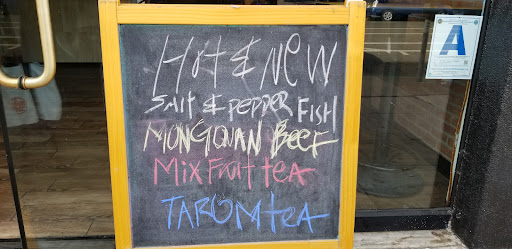 Hot & New
Salt & Pepper Fish
Mongolian Beef
Mix Fruit tea
TAROM tea
A